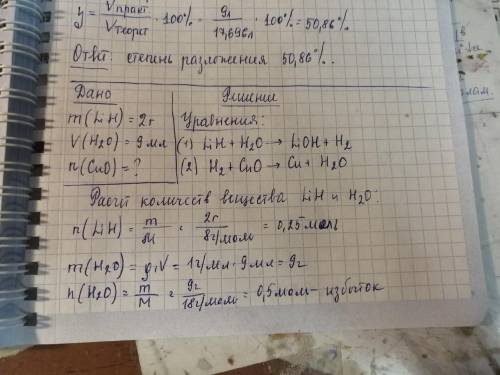 y = Vпракт / Vтеорет · 100% = 9л / 17,696л · 100% = 50,86%
Ответ: степень разложения 50,86%.
Дано
Решение
m(LiH) = 2г
Уравнения:
V(H2O) = 9 мл
(1) LiH + H2O → LiOH + H2
n(CuO) = ?
(2) H2 + CuO → Cu + H2O
Расчёт количеств вещества LiH и H2O:
n(LiH) = m/M = 2г / 8г/моль = 0,25 моль
m(H2O) = ρ·V = 1г/мл · 9мл = 9г
n(H2O) = m/M = 9г / 18г/моль = 0,5 моль - избыток